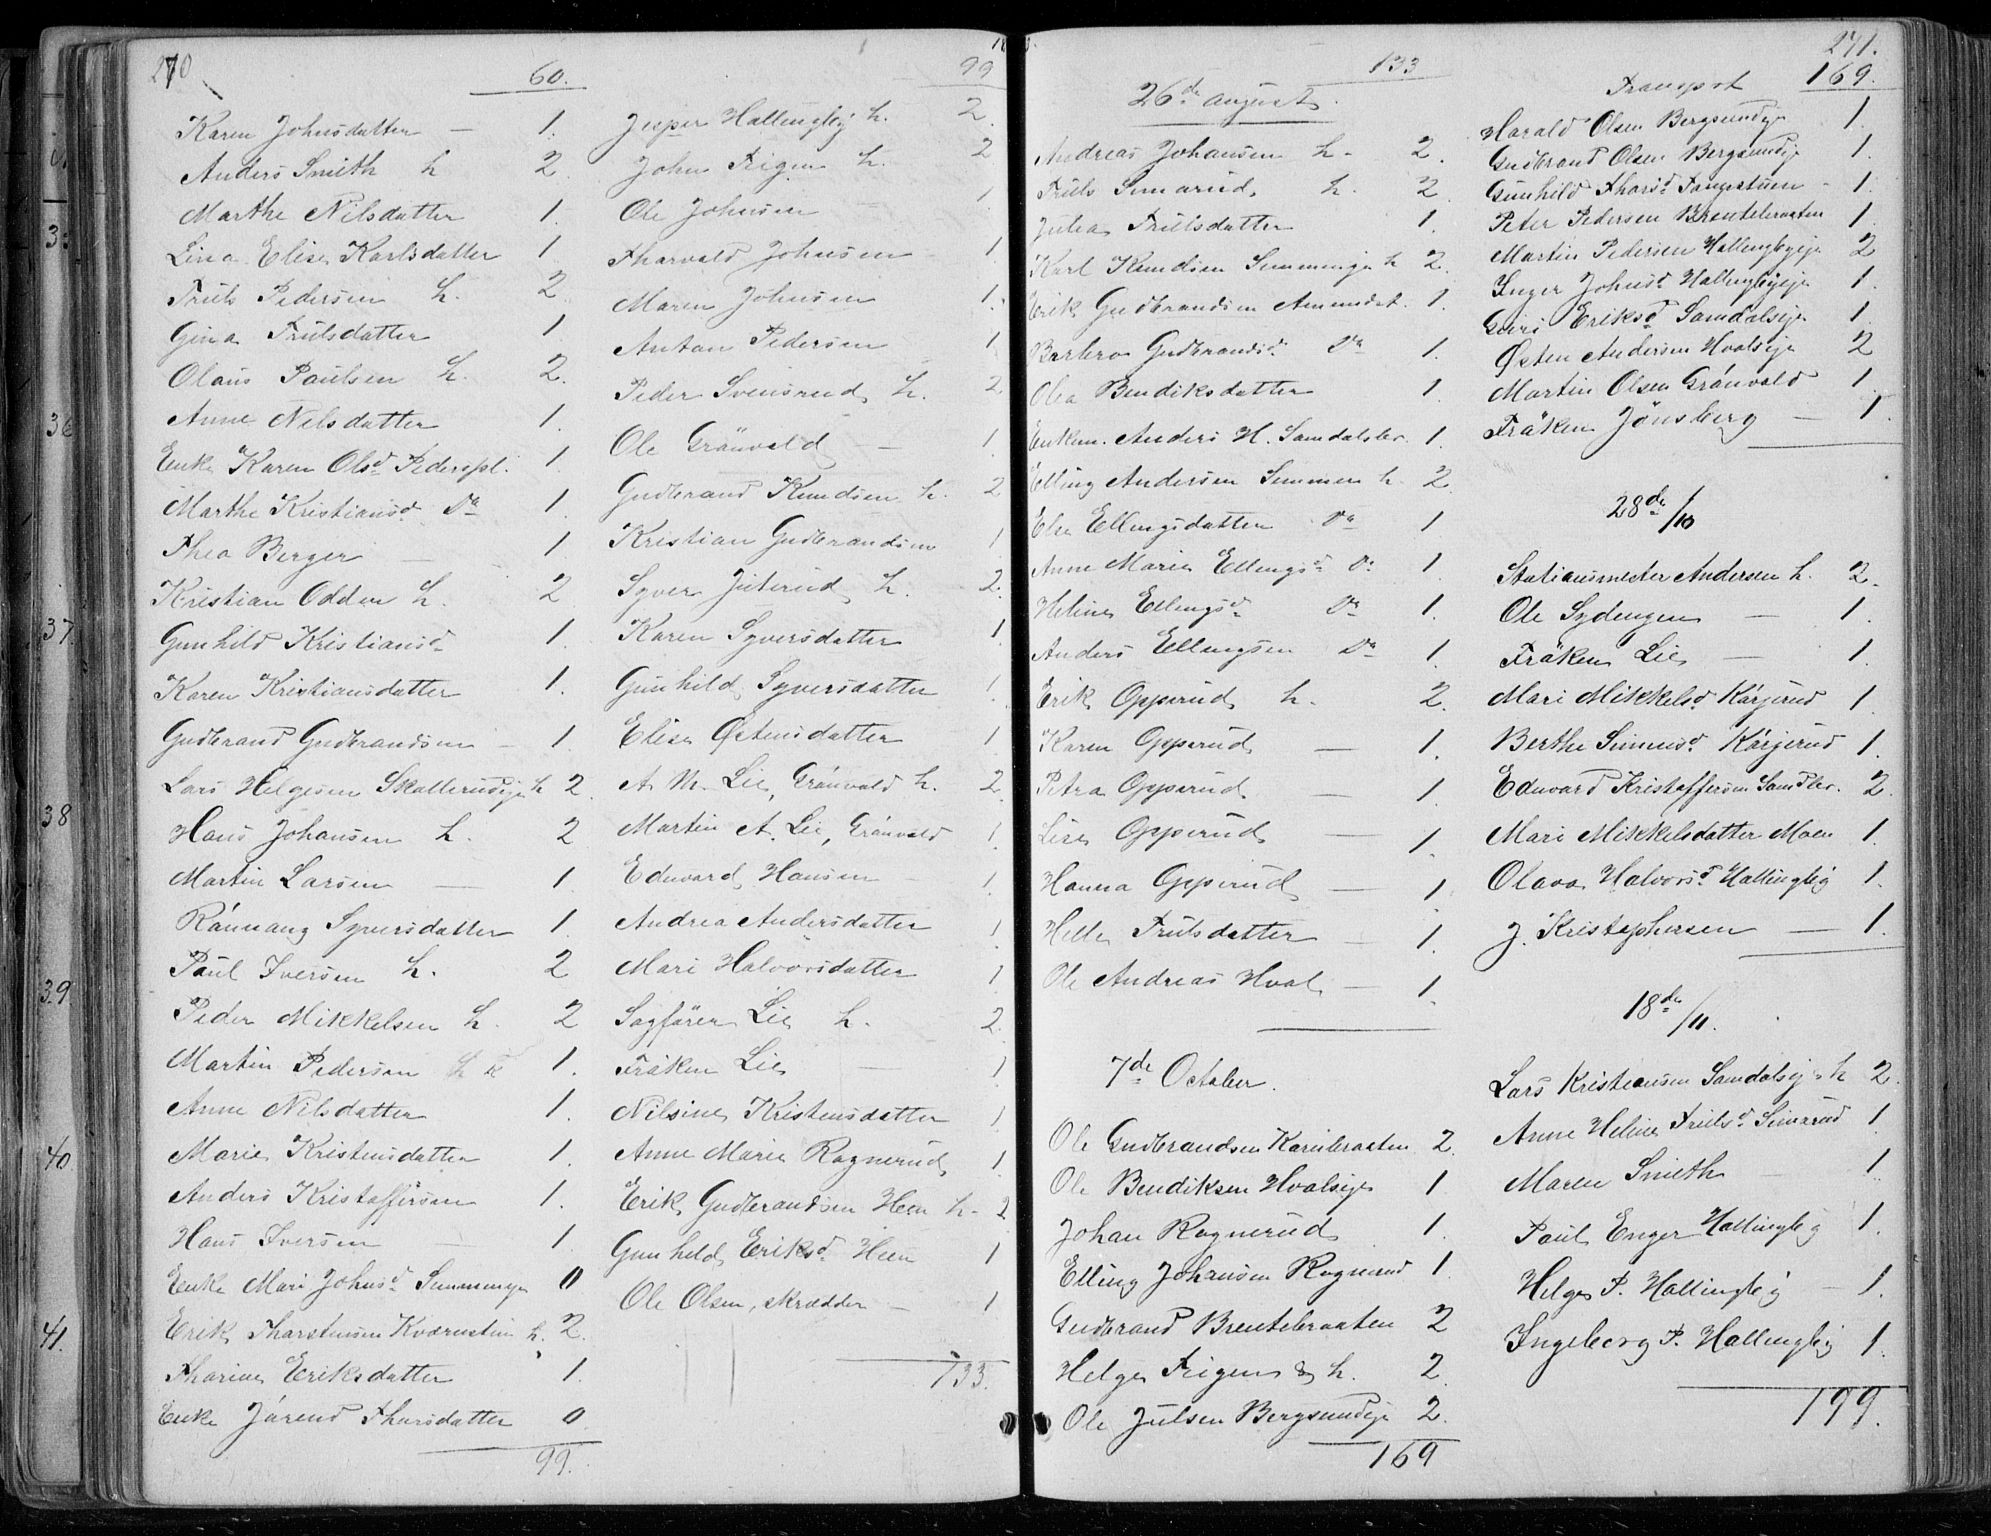 270
60.
Karen Johnsdatter — 1.
Anders Smith h 2.
Marthe Nilsdatter 1.
Lina Elise Karlsdatter 1
Truls Pedersen h. 2.
Gina Trulsdatter 1
Olaus Paulsen h. 2.
Anne Nilsdatter 1.
Enke Karen Olsd. Pederspl. 1
Marthe Kristiansd. Do 1.
Thea Berger — 1
Kristian Odden h. 2
Gunhild Kristiansd. 1.
Karen Kristiansdatter 1.
Gudbrand Gudbrandsen — 1.
Lars Helgesen Skollerudeje h 2.
Hans Johansen h. 2
Martin Larsen — 1.
Rönnaug Syversdatter 1.
Paul Iversen h. 2
Peder Mikkelsen h. 2
Martin Pedersen 1.
Anne Nilsdatter 1.
Marie Kristensdatter 1.
Anders Kristoffersen 1.
Hans Iversen — 1.
Enke Mari Johnsd. 0
Erik Tharstensen h. 2.
Tharine Eriksdatter 1.
Enke Jörend Tharsdatter 0
99.
99
Jesper Hallingby h. 2.
John Trigen h. 2
Ole Johnsen — 1
Tharvald Johnsen — 1
Maren Johnsen 1.
Anton Pedersen 1
Peder Svensrud h. 2
Ole Grönvold — 1
Gudbrand Knudsen h. 2
Kristian Gudbrandsen 1
Syver Juterud h. 2.
Karen Syversdatter 1
Gunhild Syversdatter 1
Elise Østensdatter 1
A. M. Lie, Grönvold h. 2.
Martin A. Lie, Grönvold 1.
Edvard Hansen 1.
Andrea Andersdatter 1
Mari Halvorsdatter 1
Sagförer Lie h. 2.
Fröken Lie — 1
Nilsine Kristensdatter 1
Anne Marie Rognerud 1
Erik Gudbrandsen Heen h. 2
Gunhild Eriksd. Heen 1
Ole Olsen, skrædder — 1
133.
133
26de august.
Andreas Johansen h. 2.
Truls Simarud h. 2
Julia Trulsdatter 1.
Karl Knudsen h 2.
Erik Gudbrandsen 1.
Barbro Gudbrandsd. Do 1.
Olea Bendiksdatter 1.
Enkem. Anders H. 1.
Elling Andersen h. 2.
Else Ellingsdatter Do 1
Anne Marie Ellingsd. Do 1.
Heline Ellingsd. Do 1.
Anders Ellingsen Do 1.
Erik Opperud h. 2.
Karen Opperud — 1.
Petra Opperud — 1.
Lise Opperud — 1.
Hanna Opperud — 1
Helle Trulsdatter — 1.
Ole Andreas Hval — 1.
7de October.
Ole Gudbrandsen 2.
Ole Bendiksen Hvalseje 1
Johan Rognerud 1.
Elling Johansen Rognerud 1.
Gudbrand Brentebraaten 2
Helge Trigen & h. 2.
Ole Julsen Bergsundeje 2.
169
271.
Transport 169.
Harald Olsen Bergsundeje 1.
Gudbrand Olsen Bergsundeje 1.
Gunhild Tharsd. — 1.
Peter Pedersen Brentebraaten 1.
Martin Pedersen Hallingbyeje 2
Inger Johnsd. Hallingbyeje 1.
Guri Eriksd. Samdalseje 1.
Østen Andersen Hvalseje 2
Martin Olsen Grönvold 1.
Fröken Jönsberg — 1.
28de/10
Stationsmester Andersen h. 2.
Ole Sydengen — 1.
Fröken Lie — 1.
Mari Mikkelsd. Körjerud 1.
Berthe Simensd. Körjerud 1.
Edvard Kristoffersen 2.
Mari Mikkelsdatter Moen 1.
Olava Halvorsd. Hallingby 1.
J. Kristophersen — 1.
18de/11.
Lars Kristiansen Samdalseje h 2.
Anne Heline Trulsd. Simarud 1.
Maren Smith 1.
Paul Enger Hallingby 1.
Helge P. Hallingby — 1.
Ingeborg P. Hallingby 1.
199.
36
37.
38
39.
40
41.